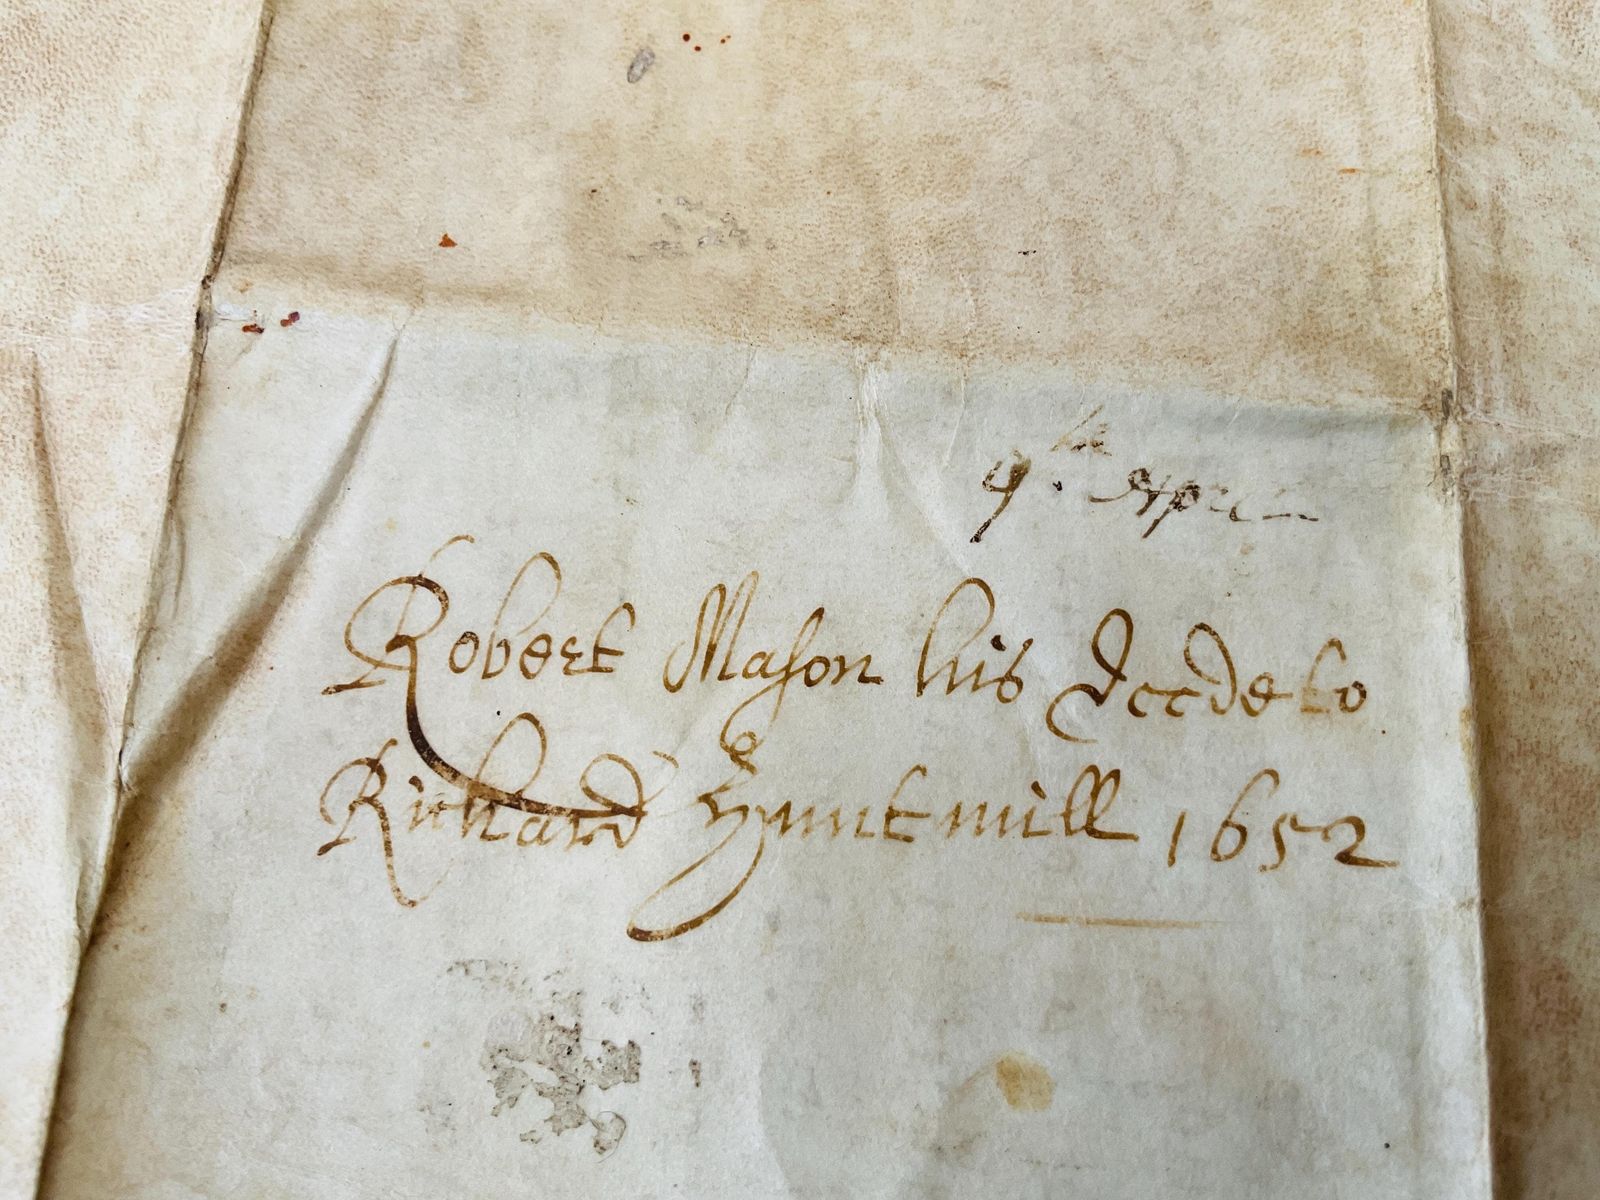 9th Aprill
Robert Mason his deede to
Richard Huntmill 1652